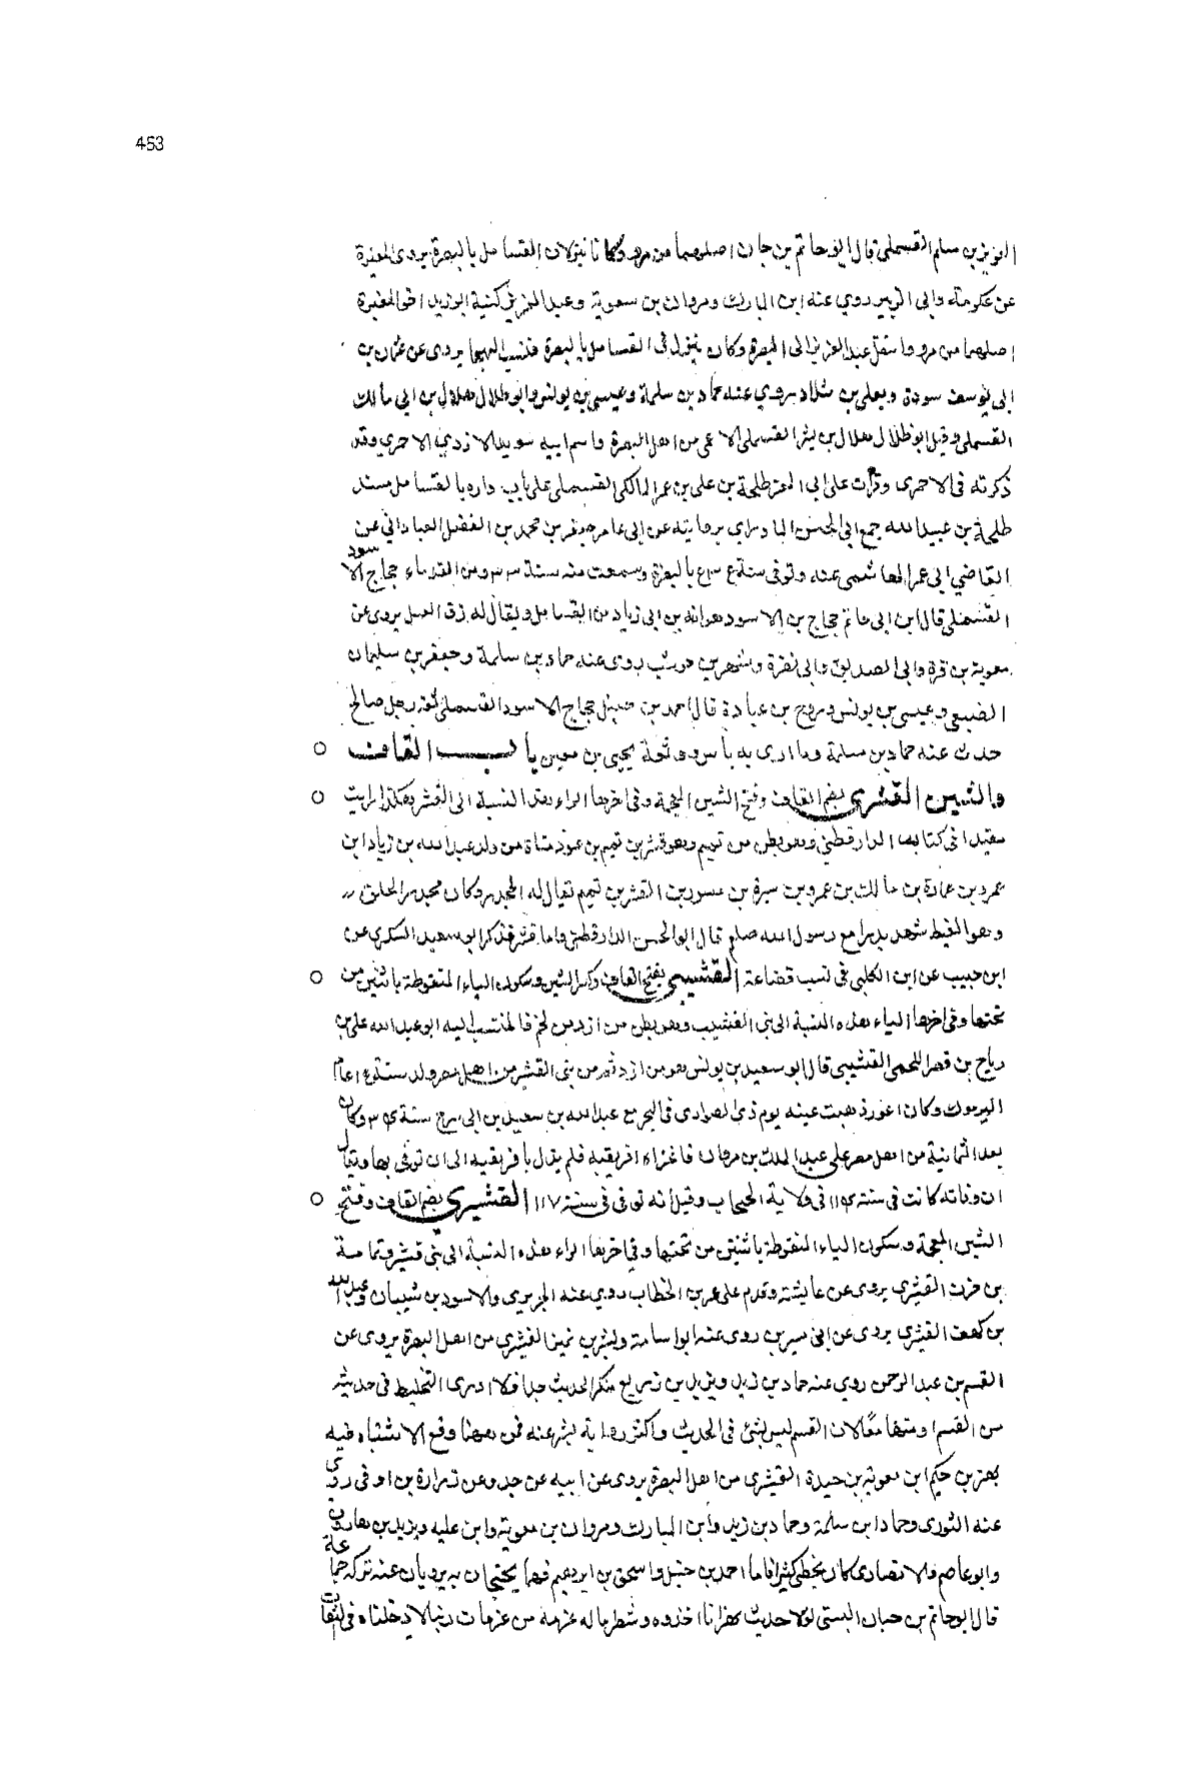 453
العزيز بن مسلم القسملى قال ابو حاتم بن حبان اصلهما من مرو وكانا ينزلان القسامل بالبصرة يروى المغيرة
عن عكرمة وابى الزبير روي عنه ابن المبارك ومروان بن معوية وعبد العزيز كنية ابو زيد اخو المغيرة
اصلهما من مرو انتقل عبد العزيز الى البصرة وكان ينزل فى القسامل بالبصرة فنسب اليها يروى عن عثمان بن
ابى سودة ويعلى بن شداد يروي عنه حماد بن سلمة وعيسى بن يونس وابو ظلال هلال بن ابى مالك
القسملى وقيل ابو ظلال هلال بن بشر القسملى الاعمى من اهل البصرة واسم ابيه سويد الازدي الاحمرى وقد
ذكرته فى الاحمرى وقرأت على ابى المعز طلحة بن على بن عمر المالكى القسملى على باب داره بالقسامل مسند
طلحة بن عبيد الله جمع ابى الحسن بروايته عن ابى عامر جعفر بن محمد بن الفضل العبادانى عن
القاضى ابى عمر الهاشمى عنه وتوفى سنة بالبصرة وسمعت منه سنة ٣٣ ومن القدماء حجاج الاسود
القسملى قال ابن ابى حاتم حجاج بن الاسود هو ابن ابى زياد من القسامل ويقال له زق العسل يروى عن
معوية بن قرة وابى الصديق وابى نضرة وشهر بن حوشب روى عنه حماد بن سلمة وجعفر بن سليمان
الضبعى وعيسى بن يونس وروح بن عبادة قال احمد بن حنبل حجاج الاسود القسملى ثقة رجل صالح
حدث عنه حماد بن سلمة وما ارى به باس ووثقة يحيى بن معين باب القاف
والشين القشرى بضم القاف وفتح الشين المعجمة وفى اخرها الراء هذه النسبة الى القشر هكذا رايت
مقيدا فى كتاب الدارقطنى وهو بطن من تميم وهو قشر بن تميم بن عوذ مناة من ولد عبد الله بن زياد ابن
عمرو بن عمارة بن مالك بن عمرو بن بن القشر بن تميم يقال له المجذر وكان مجذر الخلق
وهو الغليظ شهد بدرا مع رسول الله صلعم قال ابو الحسن الدارقطنى واما قشر فذكر ابو سعيد السكرى عن
ابن حبيب عن ابن الكلبى فى نسب قضاعة القشيبى بفتح القاف وكسر الشين وسكون الياء المنقوطة باثنتين من
تحتها وفى اخرها الباء هذه النسبة الى بنى القشيب وهو بطن من ازد من لخم فالمنتسب اليه ابو عبد الله على بن
رباح بن قصر اللخمى القشيبى قال ابو سعيد بن يونس هو من ازد ثم من بنى القشيب من اهل مصر ولد سنة عام
اليرموك وكان اعور ذهبت عينه يوم ذى الصوارى فى البحر مع عبد الله بن سعد بن ابى سرح سنة وكان
بعد اليمانية من اهل مصر على عبد الملك بن مروان فاغزاه افريقية فلم يزل بافريقية الى ان توفى بها ويقال
ان وفاته كانت فى سنة فى ولاية الحبحاب وقيل انه توفى فى سنة ١١٧ القشيرى بضم القاف وفتح
الشين المعجمة وسكون الياء المنقوطة باثنتين من تحتها وفى اخرها الراء هذه النسبة الى بنى قشير وثمامة
بن حزن القشيرى يروى عن عايشة وقدم على عمر بن الخطاب روي عنه الجريرى والاسود بن شيبان وعبد الله
بن كهف القشيرى يروى عن ابن سيرين روى عنه ابو اسامة وبشر بن نمير القشيرى من اهل البصرة يروى عن
القسم بن عبد الرحمن روي عنه حماد بن زيد ويزيد بن زريع منكر الحديث جدا فلا ادرى التخليط فى حديثه
من القسم او منهما معًا لان القسم ليس بشئ فى الحديث واكثر رواية بشر عنه فمن ههنا وقع الاشتباه فيه
بهز بن حكيم ابن معوية بن حيدة القشيرى من اهل البصرة يروى عن ابيه عن جده وعن زرارة بن اوفى روى
عنه الثورى وحماد ابن سلمة وحماد بن زيد وابن المبارك ومروان بن معوية وابن عليه ويزيد بن هارون
وابو عاصم والانصارى كان يخطى كثيرا فاما احمد بن حنبل واسحق بن ابرهيم فهما يحتجان به يرويان عنه تركه جماعة
قال ابو حاتم بن حبان البستى لولا حديث بهز انا اخذوه وشطر ماله عزمة من عزمات ربنا لادخلناه فى الثقات